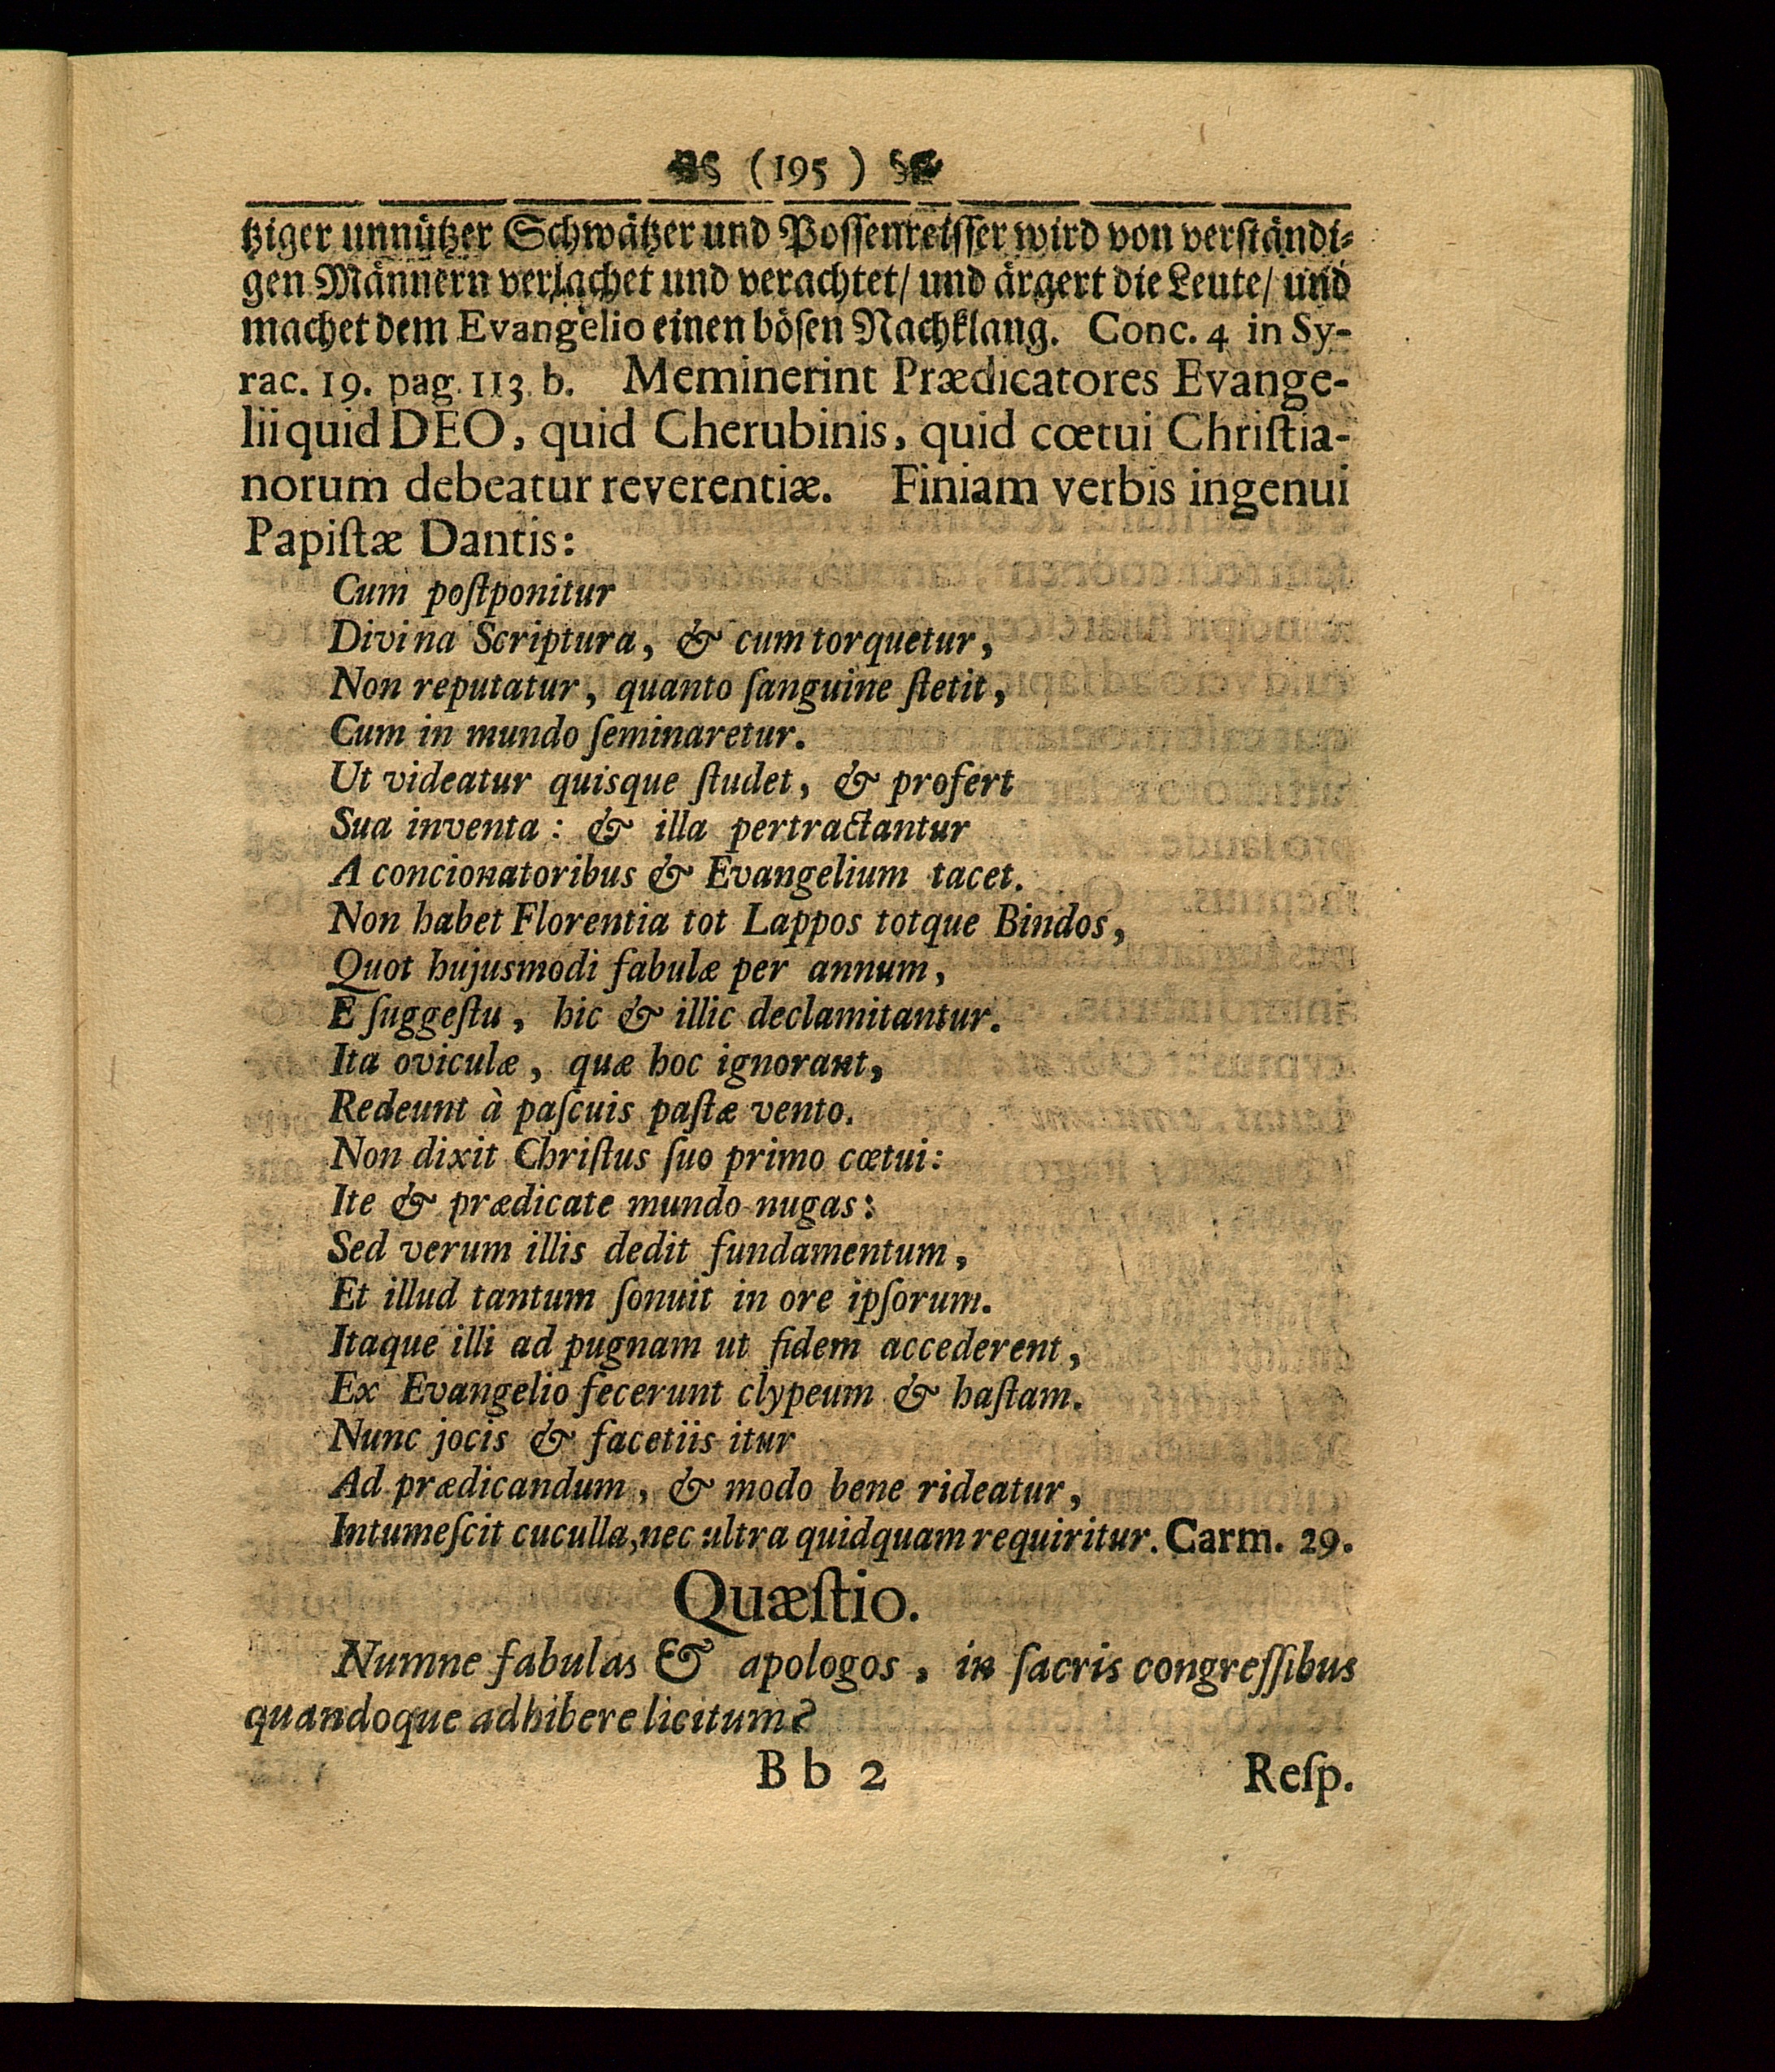 (195)
tziger unnützer Schwätzer und Possenreisser wird von verständi-
gen Männern verlachet und verachtet/ und ärgert die Leute/ und
machet dem Evangelio einen bösen Nachklang. Conc. 4 in Sy-
rac. 19. pag. 113. b. Meminerint Prædicatores Evange-
lii quid DEO, quid Cherubinis, quid cœtui Chriſtia-
norum debeatur reverentiæ. Finiam verbis ingenui
Papiſtæ Dantis:
Cum poſtponitur
Divina Scriptura, & cum torquetur,
Non reputatur, quanto ſanguine ſtetit,
Cum in mundo ſeminaretur.
Ut videatur quisque ſtudet, & profert
Sua inventa: & illa pertractantur
A concionatoribus & Evangelium tacet.
Non habet Florentia tot Lappos totque Bindos,
Quot hujusmodi fabulæ per annum,
E ſuggeſtu, hic & illic declamitantur.
Ita oviculæ, quæ hoc ignorant,
Redeunt à paſcuis paſtæ vento.
Non dixit Chriſtus ſuo primo cœtui:
Ite & prædicate mundo nugas:
Sed verum illis dedit fundamentum,
Et illud tantum ſonuit in ore ipſorum.
Itaque illi ad pugnam ut fidem accederent,
Ex Evangelio fecerunt clypeum & haſtam.
Nunc jocis & facetiis itur
Ad prædicandum, & modo bene rideatur,
Intumeſcit cuculla, nec ultra quidquam requiritur. Carm. 29.
Quæſtio.
Numne fabulas & apologos, in ſacris congreſſibus
quandoque adhibere licitum?
B b 2 Reſp.